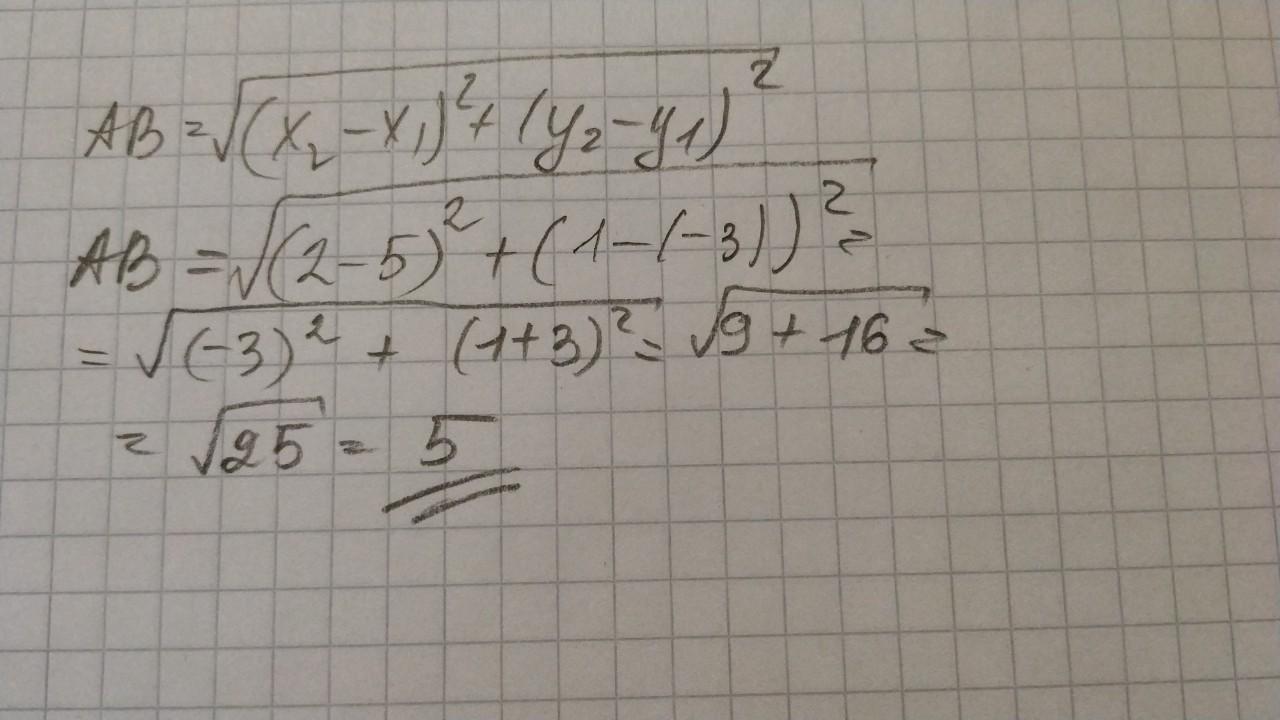 AB = √(x₂ - x₁)² + (y₂ - y1)²
AB = √(2 - 5)² + (1 - (-3))² =
= √(-3)² + (1 + 3)² = √9 + 16 =
= √25 = 5